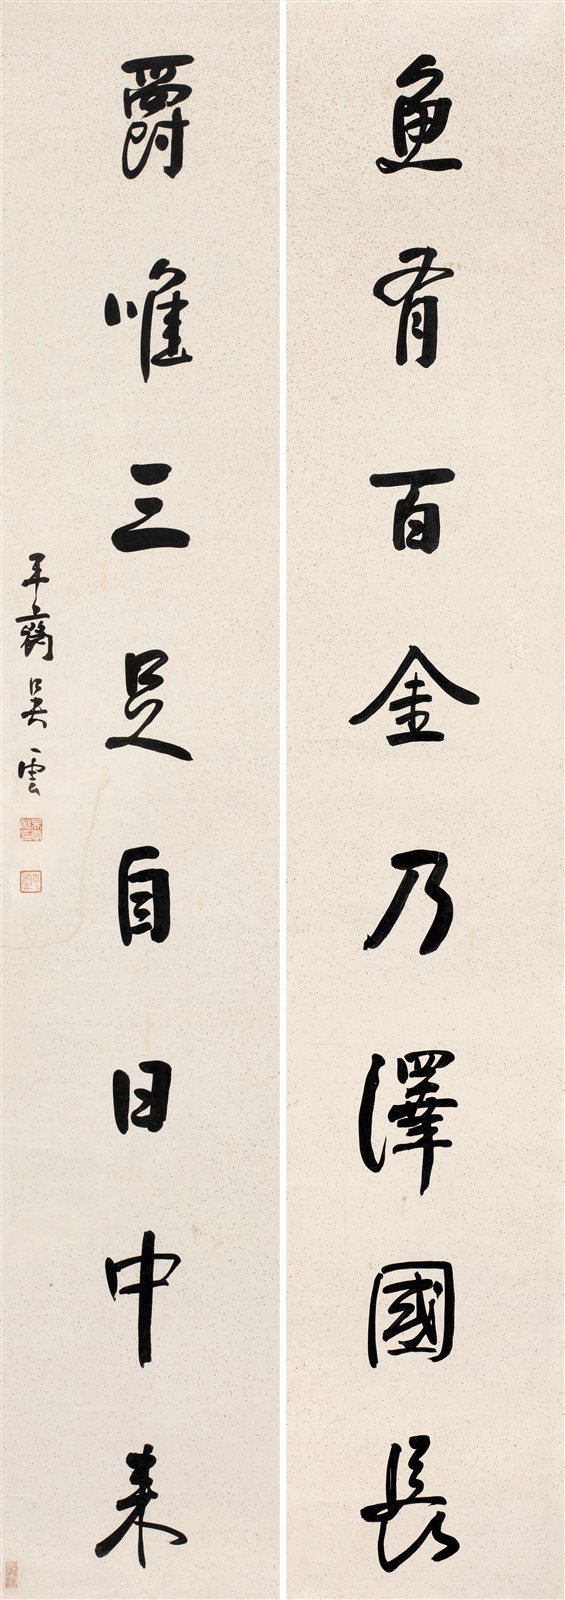 魚有百金乃澤國長
爵唯三足自日中来
平齋吳雲